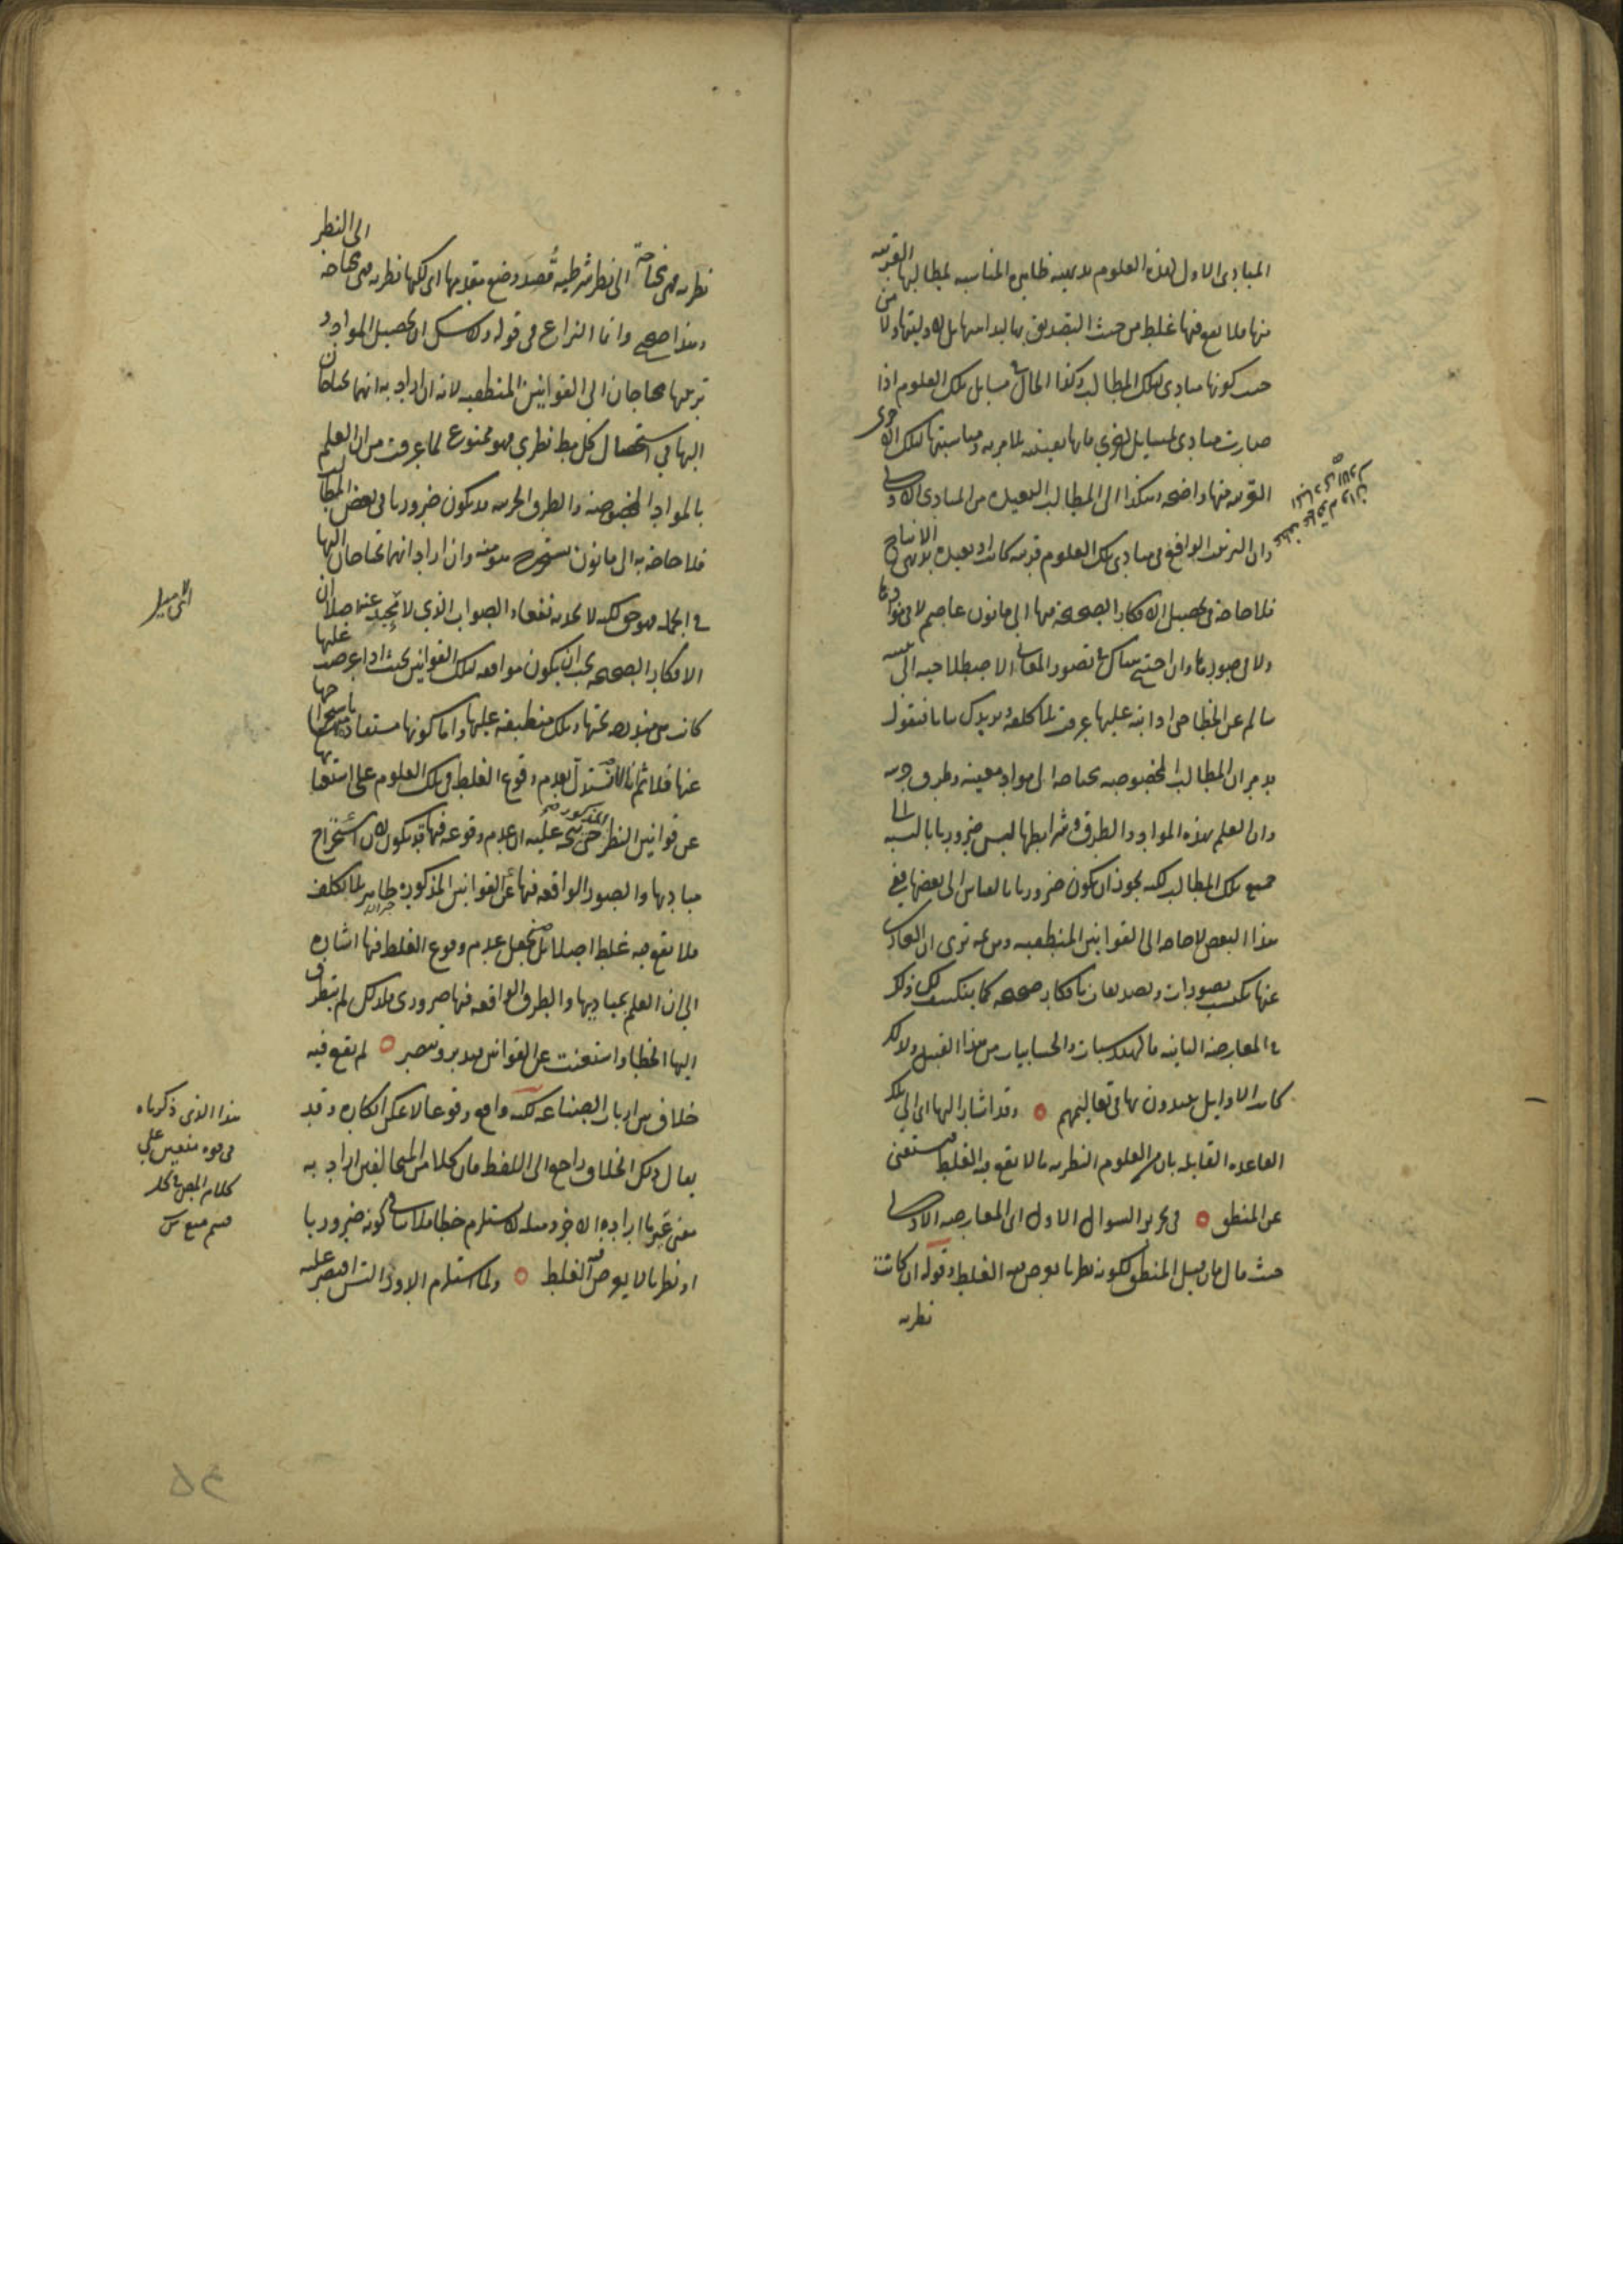 المبادى الاول لهذه العلوم بديهية ظاهرة المناسبة لمطالبها القريبة
منها فلا يقع فيها غلط من حيث التصديق بها لبداهتها بل لاوليتها ولا من
حيث كونها مبادى لتلك المطالب وكذا الحال فى مسايل تلك العلوم اذا
صارت مبادى لمسايل اخرى فانها يقينية لما مر به ومناسبتها لتلك الاخرى
القريبة منها واضحة وهكذا الى المطالب البعيدة من المبادى الاولى
وان الترتيب الواقع فى مبادى تلك العلوم قريبة كانت او بعيدة بديهى الانتاج
فلا حاجة فى تحصيل الافكار الصحيحة فيها الى قانون عاصم لا فى موادها
ولا فى صورها وان احتيج هناك فى تصور المعانى الاصطلاحية الى تنبيه
سالم عن الخطا حتى اذا نبه عليها عرفت بلا كلفة ونزيدك بيانا فنقول
قد مر ان المطالب المخصوصة محتاجة الى مواد معينة وطرق جزئية
وان العلم بهذه المواد والطرق وشرايطها ليس ضروريا بالنسبة الى
جميع تلك المطالب لكنه يجوز ان يكون ضروريا بالقياس الى بعضها ففى
هذا البعض لا حاجة الى القوانين المنطقية ومن ثم ترى ان العارى
عنها يكتسب تصورات وتصديقات بافكار صحيحة كما ينكشف لك ذلك
فى المعارضة الثانية فالهندسيات والحسابيات من هذا القبيل ولذلك
كانت الاوايل يبدؤن بها فى تعاليمهم ٥ وقد اشار اليها اى الى تلك
القاعدة القايلة بان من العلوم النظرية ما لا يقع فيه الغلط فيستغنى
عن المنطق ٥ فى تحرير السوال الاول اى المعارضة الاولى
حيث قال فان قيل المنطق لكونه نظريا يعرض فيه الغلط وقوله ان كانت
نظرية
نظرية فهى محتاجة الى نظر شرطية قصد وضع مقدمها اى لكنها نظرية فهى محتاجة الى النظر
وهذا صحيح وانما النزاع فى قوله ولا شك ان تحصيل المواد و
ترتيبها محتاجان الى القوانين المنطقية لانه ان اراد به انهما محتاجان
اليها فى استحصال كل مط نظرى فهو ممنوع لما عرفت من ان العلم
بالمواد المخصوصة والطرق الجزئية قد يكون ضروريا فى بعض المطالب
فلا حاجة به الى قانون يستخرج هو منه وان اراد انهما محتاجان اليها
فى الجملة فهو حق لكنه لا يجديه نفعا والصواب الذى لا محيد عنه اصلا ان
الافكار الصحيحة يجب ان يكون موافقة لتلك القوانين بحيث اذا عرضت عليها
كانت مندرجة تحتها وتلك منطبقة عليها واما كونها مستفادة منها باستخراجها
عنها فلا ثم انا لا نستدل بعدم وقوع الغلط فى تلك العلوم على استغنائها
عن قوانين النظر حتى يتجه عليه ان عدم وقوعه فيها قد يكون لان استخراج
مباديها والصور الواقعة فيها عن القوانين المذكورة ظاهر بلا تكلف
فلا يقع فيه غلط اصلا بل نجعل عدم وقوع الغلط فيها اشارة
الى ان العلم بمباديها والطرق الواقعة فيها ضرورى فلذلك لم يتطرق
اليها الخطا واستغنت عن القوانين فتدبر وتبصر ٥ لم يقع فيه
خلاف من ارباب الصناعة لكنه واقع وقوعا لا يمكن انكاره وقد
يقال ذلك الخلاف راجع الى اللفظ فان كلا من المتخالفين اراد به
معنى غير ما اراده الاخر ومثله لا يستلزم خطا فلا ينافى كونه ضروريا
او نظريا لا يعرض فيه الغلط ٥ ولما استلزم الدور التس اقتصر عليه
هذا الذى ذكرناه
فى قوة منعين على
كلام المص فى كل
قسم منع س